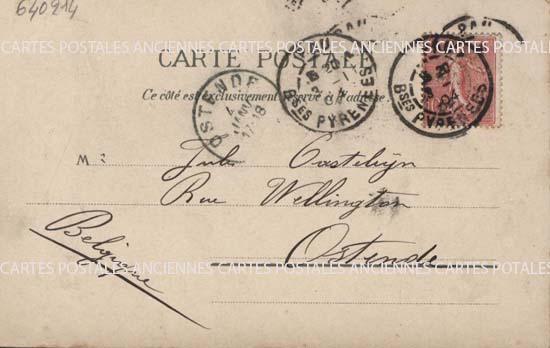 640214
CARTES POSTALES ANCIENNES CARTES POSTALES ANCIENNES CARTES POSTALES
CARTE POSTALE
Ce côté est exclusivement réservé à l'adresse
OSTENDE
PAU
Bses PYRENEES
PAU
Bses PYRENEES
M
Jules
Rue Wellington
Ostende
Belgique
CARTES POSTALES ANCIENNES CARTES POSTALES ANCIENNES CARTES POSTALES